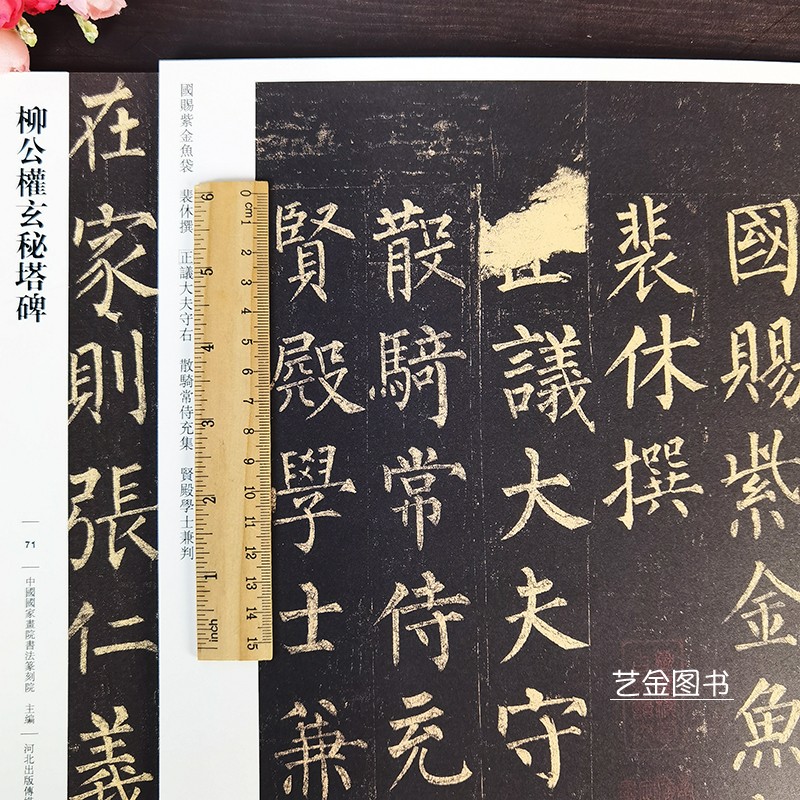 國賜紫金魚
裴休撰
正議大夫守
散騎常侍充
賢殿學士兼
國賜紫金魚袋 裴休撰 正議大夫守右 散騎常侍充集 賢殿學士兼判
在家則張仁義
柳公權玄秘塔碑
71
中國國家畫院書法篆刻院 主編
河北出版傳
0 cm 1 2 3 4 5 6 7 8 9 10 11 12 13 14 15
6 5 4 3 2 1 inch
艺金图书